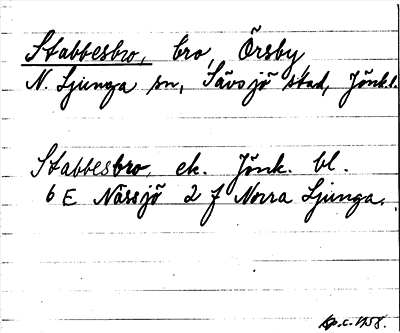 Stabbesbro, bro, Örsby,
N. Ljunga sn, Sävsjö stad, Jönk.l.
Stabbesbro, ek. Jönk. bl.
6 E Nässjö 2 f Norra Ljunga.